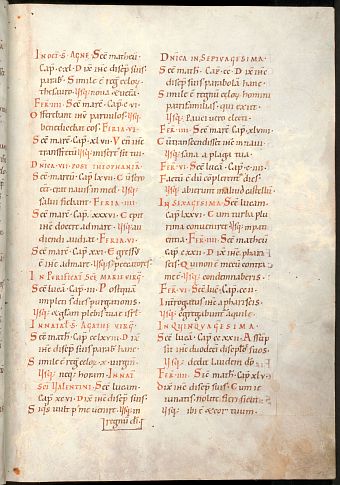 IN OCT S AGNE Scd matheu
Cap cxl Dix ihc discip suis
parab Simile e reg celoR
thesauro Usq noua & uetera
FER IIII Scd marc Cap c vi
Offerebant ihu paruulos Usq
benedicebat eos FERIA VI
Scd marc Cap xlvii Veni ihc
trans fretu Usq misert sit tui
DNICA VII POST THEOPHANIA
Scd marcu Capl lxvii Cu sero
eet erat nauis in med Usq
salui fiebant FERIA IIII
Scd marc Cap xxxvi Cepit
ihc docere ad mare Usq au
diendi audiat FERIA VI
Scd marc Cap xxi Egressus
e ihc ad mare Usq peccatores
IN PURIFICAT SCE MARIE VIRG
Scd luca Cap III Postqua
impleti s dies purgationis
Usq & glam plebis tuae isrl
IN NATAL S AGATHE VIRG
Scd math Cap cclxviii Dix
ihc discip suis parab hanc
Simile e reg celoR x uirginib
Usq neq horam IN NAT
SCI VALENTINI Scd lucam
Cap xcvi Dix ihc discip suis
Siqs uult p me uenire Usq in
regnu di
DNICA IN SEPTUAGESIMA
Scd math Cap cc Dix ihc
discip suis parabola hanc
Simile e regnu celoR homini
patrifamilias qui exiit
Usq Pauci uero electi
FER IIII Scd marc Cap xlviii
Cu transcendisset ihc in naui
Usq sana a plaga tua
FER VI Scd luca Cap c IIII
Factu e du coplerent dies
Usq abierunt in aliud castellu
IN SEXAGESIMA Scd lucam
Capl lxxvi Cum turba plu
rima conueniret Usq in pati
entia FER IIII Scd matheu
Cap cxxii Dix ihc phari
seis Qui non e mecu contra
me e Usq condemnaberis
FER VI Scd luc Cap cc II
Interogatus ihc a phariseis
Usq cgregabunt aquile
IN QUINQUAGESIMA
Scd luca Cap ccxxii Assup
sit ihc duodeci discipulos suos
Usq dedit laudem do
FER IIII Scd math Cap xlv
Dix ihc discip suis Cum ie
iunatis nolite fieri sicut
Usq ibi e & cor tuum